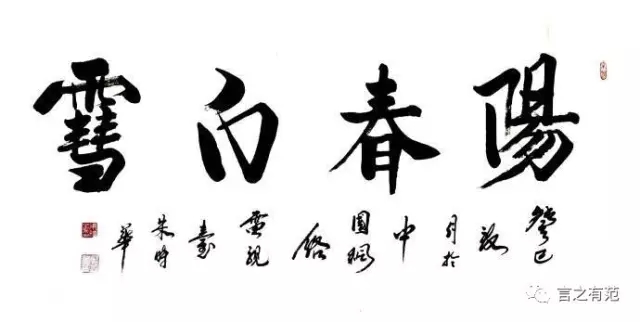 陽春白雪
癸巳
月於
中
國網
絡
電視
臺
朱時
華
言之有范